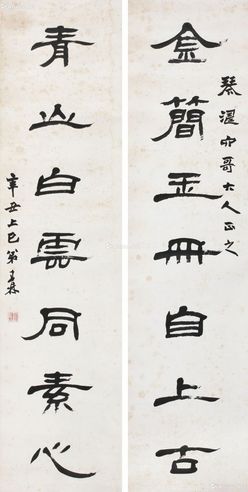 金簡玉冊自上古
琴温六哥大人正之
青山白雲同素心
辛丑上巳弟王霖